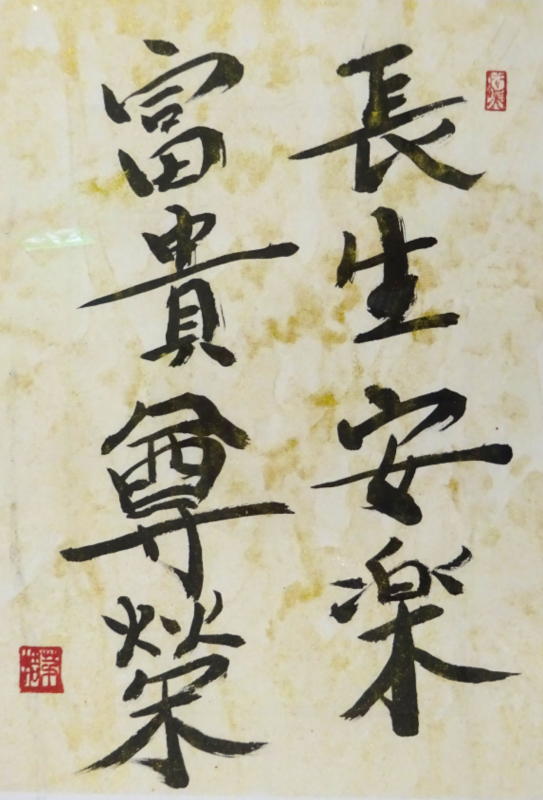 長生安楽
富貴尊榮